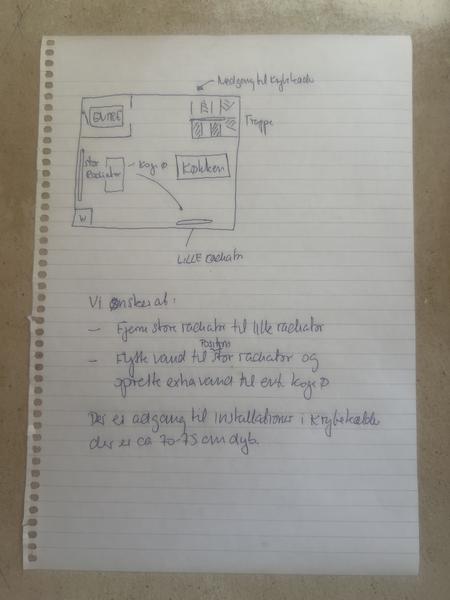 Nedgang til Krybekælder
Trappe
stor
Radiator
Koge Ø
Køkken
W
LILLE radiator
Vi ønsker at:
- Fjerne store radiator til lille radiator
position
- Flytte vand til stor radiator og
oprette extra vand til evt. Koge Ø
Der er adgang til installationer i Krybekælder
der er ca 70-75 cm dyb.